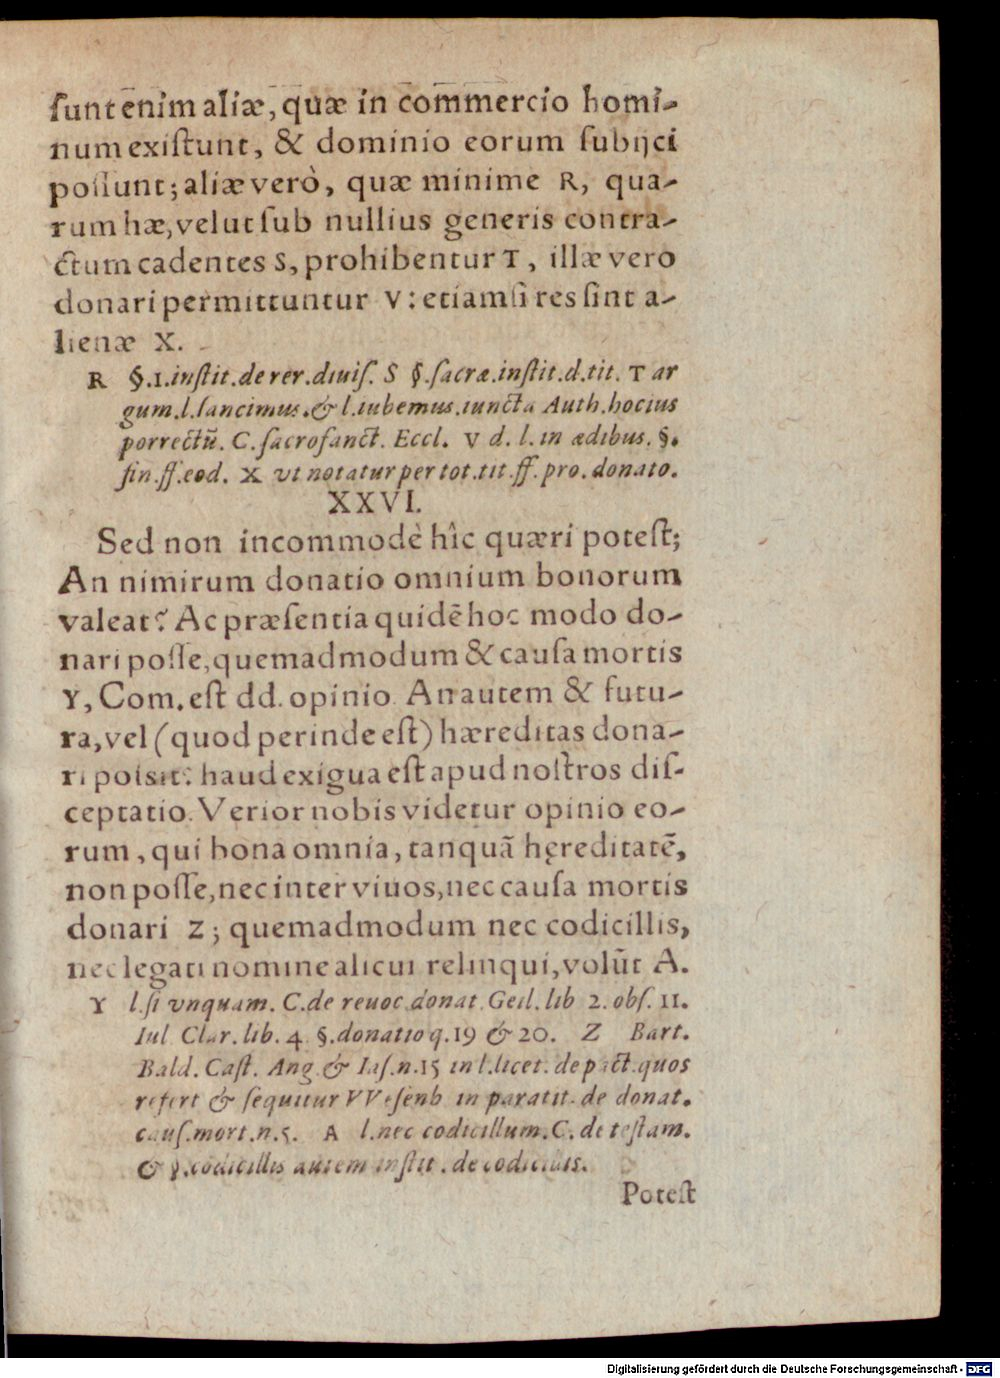 ſunt enim aliæ, quæ in commercio homi-
num exiſtunt, & dominio eorum ſubijci
poſſunt; aliæ verò, quæ minime R, qua-
rum hæ, velut ſub nullius generis contra-
ctum cadentes S, prohibentur T, illæ vero
donari permittuntur V: etiamſi res ſint a-
lienæ X.
R §.1.inſtit.de rer.diuiſ. S §.ſacræ.inſtit.d.tit. T ar
gum.l.ſancimus.& l.iubemus.iuncta Auth.hoc ius
porrectū. C.ſacroſanct. Eccl. V d. l. in ædibus. §.
fin.ff.eod. X vt notatur per tot.tit.ff.pro.donato.
XXVI.
Sed non incommodè hîc quæri poteſt;
An nimirum donatio omnium bonorum
valeat? Ac præſentia quidē hoc modo do-
nari poſſe, quemadmodum & cauſa mortis
Y, Com. eſt dd. opinio. An autem & futu-
ra, vel (quod perinde eſt) hæreditas dona-
ri poſsit? haud exigua eſt apud noſtros diſ-
ceptatio. Verior nobis videtur opinio eo-
rum, qui bona omnia, tanquā hęreditatē,
non poſſe, nec inter viuos, nec cauſa mortis
donari Z; quemadmodum nec codicillis,
nec legati nomine alicui relinqui, volūt A.
Y l.ſi vnquam. C.de reuoc.donat. Geil. lib 2. obſ. 11.
Iul Clar. lib. 4. §.donatio q.19 & 20. Z Bart.
Bald. Caſt. Ang & Iaſ.n.15 in l.licet. de pact.quos
refert & ſequitur VVeſenb in paratit. de donat.
cauſ.mort.n.5. A l.nec codicillum.C. de teſtam.
& §.codicillis autem inſtit. de codicillis.
Poteſt
Digitalisierung gefördert durch die Deutsche Forschungsgemeinschaft - DFG